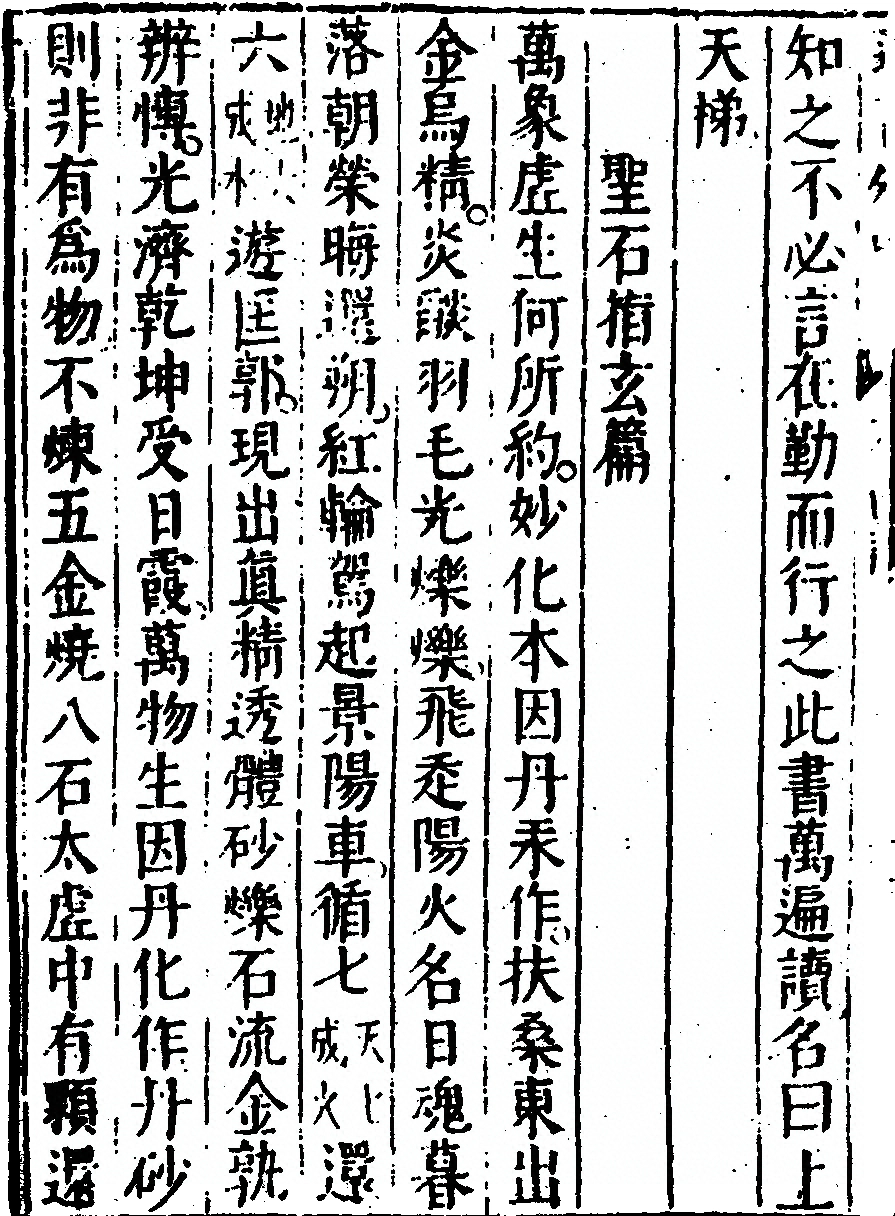 知之不必言在勤而行之此書萬遍讀名曰上
天梯
聖石指玄篇
萬象虛生何所約妙化本因丹汞作扶桑東出
金烏精炎燄羽毛光爍爍飛走陽火名日魂暮
落朝榮晦還朔紅輪駕起景陽車循七天七成火還
六地六成水遊匡郭現出眞精透體砂爍石流金孰
辨慱光濟乾坤受日霞萬物生因丹化作丹砂
則非有爲物不煉五金燒八石太虛中有顆還